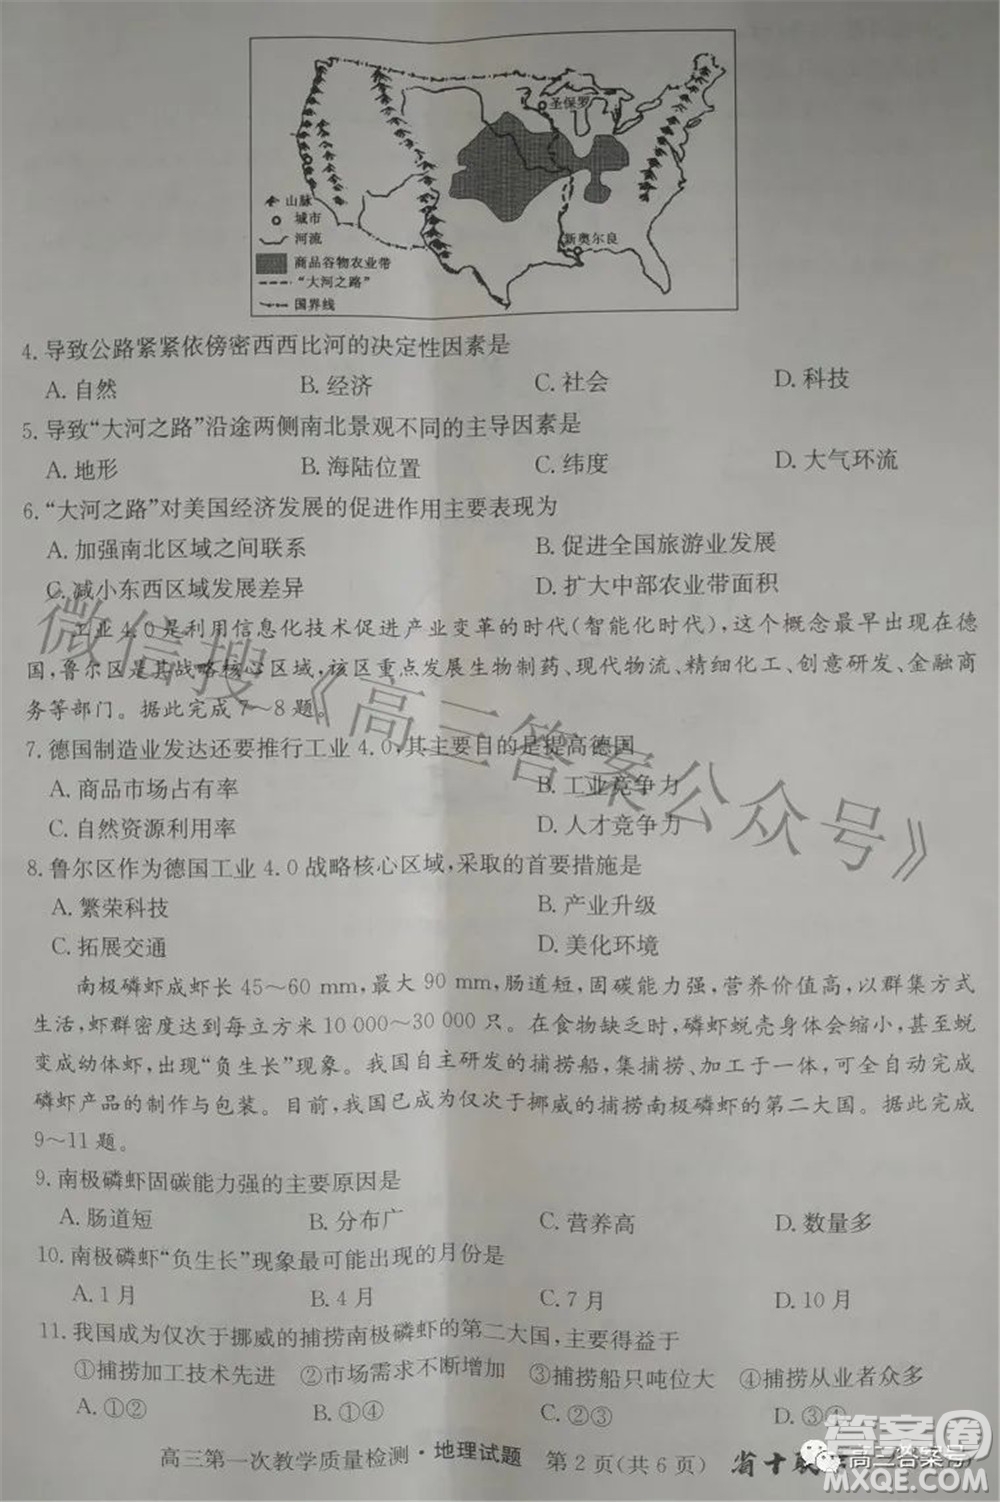 圣保罗
新奥尔良
山脉
城市
河流
商品谷物农业带
“大河之路”
国界线
4.导致公路紧紧依傍密西西比河的决定性因素是
A.自然 B.经济 C.社会 D.科技
5.导致“大河之路”沿途两侧南北景观不同的主导因素是
A.地形 B.海陆位置 C.纬度 D.大气环流
6.“大河之路”对美国经济发展的促进作用主要表现为
A.加强南北区域之间联系 B.促进全国旅游业发展
C.减小东西区域发展差异 D.扩大中部农业带面积
工业4.0是利用信息化技术促进产业变革的时代(智能化时代),这个概念最早出现在德
国,鲁尔区是其战略核心区域,该区重点发展生物制药、现代物流、精细化工、创意研发、金融商
务等部门。据此完成7～8题。
7.德国制造业发达还要推行工业4.0,其主要目的是提高德国
A.商品市场占有率 B.工业竞争力
C.自然资源利用率 D.人才竞争力
8.鲁尔区作为德国工业4.0战略核心区域,采取的首要措施是
A.繁荣科技 B.产业升级
C.拓展交通 D.美化环境
南极磷虾成虾长45～60 mm,最大90 mm,肠道短,固碳能力强,营养价值高,以群集方式
生活,虾群密度达到每立方米10 000～30 000只。在食物缺乏时,磷虾蜕壳身体会缩小,甚至蜕
变成幼体虾,出现“负生长”现象。我国自主研发的捕捞船,集捕捞、加工于一体,可全部完成
磷虾产品的制作与包装。目前,我国已成为仅次于挪威的捕捞南极磷虾的第二大国。据此完成
9～11题。
9.南极磷虾固碳能力强的主要原因是
A.肠道短 B.分布广 C.营养高 D.数量多
10.南极磷虾“负生长”现象最可能出现的月份是
A.1月 B.4月 C.7月 D.10月
11.我国成为仅次于挪威的捕捞南极磷虾的第二大国,主要得益于
①捕捞加工技术先进 ②市场需求不断增加 ③捕捞船只吨位大 ④捕捞从业者众多
A.①② B.①④ C.②③ D.③④
高三第一次教学质量检测·地理试题 第2页(共6页) 省十联
微信搜《高三答案公众号》
高三答案号
答案圈
MXQE.COM